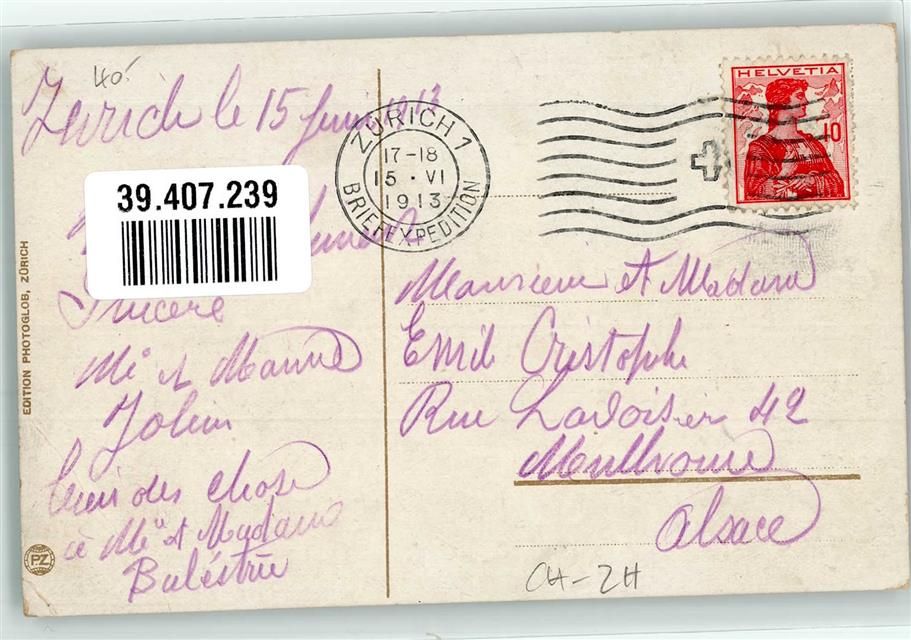 40.-
Zurich le 15 Juin 1913
39.407.239
Sincère
Mr et Mamme
bien des chose
à Mr et Madame
Baléstrie
EDITION PHOTOGLOB, ZÜRICH
PZ
ZÜRICH 1
17-18
15 · VI
1913
BRIEFEXPEDITION
HELVETIA
10
Monsieur et Madame
Emile Cristophe
Rue Lavoisier 42
Mullhouse
Alsace
CH-ZH